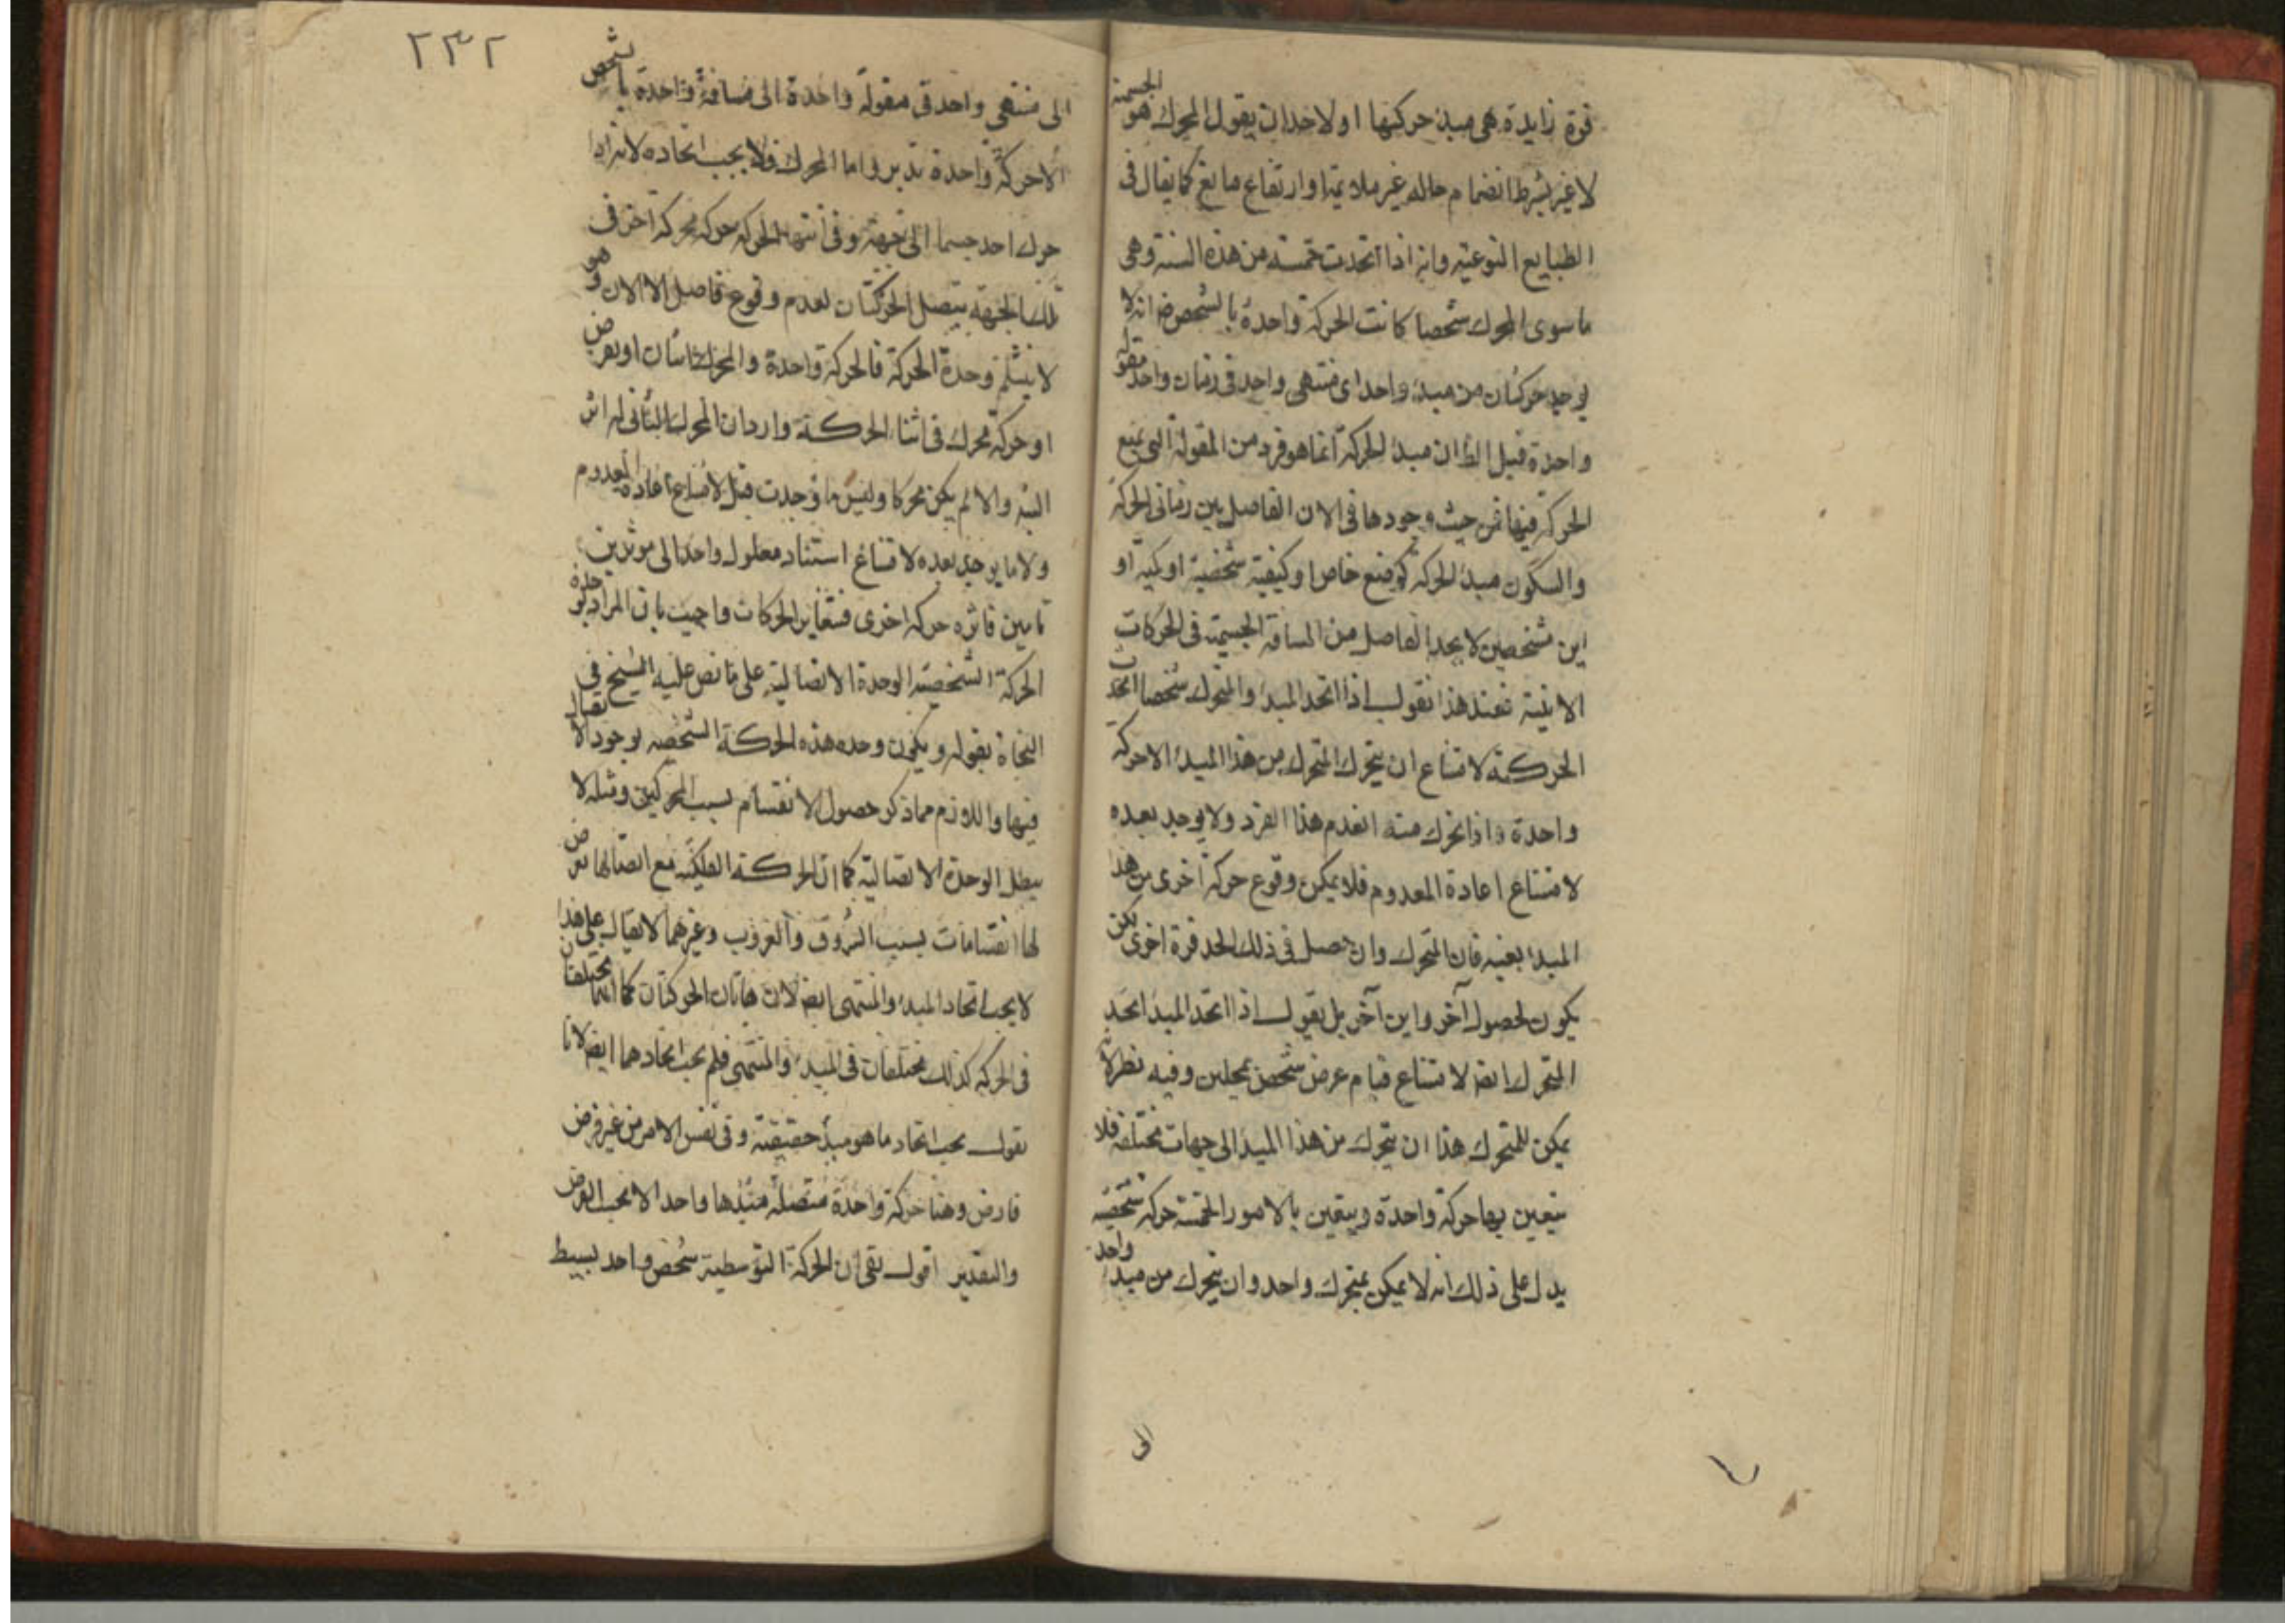 قوة زايدة هى مبدء حركتها اولا خدان يقول المحرك هو الجسمية
لا غير بشرط انضمام حاله غير ملايمة او ارتفاع مانع كما يقال فى
الطبايع النوعية وانه اذا اتحدت خمسة من هذه الستة وهى
ما سوى المحرك شخصا كانت الحركة واحدة بالشخص ضر انه لا
يوجد حركتان من مبدء واحد اى منتهى واحد فى زمان واحد مقولة
واحدة قيل الظ ان مبدء الحركة انما هو فرد من المقولة التى تقع
الحركة فيها من حيث وجودها فى الان الفاصل بين زمانى الحركة
والسكون مبدء الحركة كوضع خاص او كيفية شخصية او كمية او
اين مشخصين لا يحد الفاصل من المسافة الجسمية فى الحركات
الاينية فعند هذا نقول اذا اتحد المبدء والمتحرك شخصا اتحدت
الحركة لامتناع ان يتحرك المتحرك من هذا المبدء الا حركة
واحدة واذا تحرك منه انعدم هذا الفرد ولا يوجد بعده
لامتناع اعادة المعدوم فلا يمكن وقوع حركة اخرى من هذا
المبدء بعينه فان المتحرك وان حصل فى ذلك الحد مرة اخرى لكن
يكون لحصول آخر واين آخر بل نقول اذا اتحد المبدء اتحد
المتحرك ايضا لامتناع قيام عرض شخص بمحلين وفيه نظر لانه
يمكن للمتحرك هذا ان يتحرك من هذا المبدء الى جهات مختلفة فلا
يتعين بها حركة واحدة ويتعين بالامور الخمسة حركة شخصية
يدل على ذلك انه لا يمكن بمتحرك واحد وان يتحرك من مبدء واحد
الى
٢٣٢
الى منتهى واحد فى مقولة واحدة الى مسافة واحدة بالشخص
الا حركة واحدة تدبر واما المحرك فلا يجب اتحاده لانه اذا
حرك احد جسما الى جهة وفى انتهاء الحركة حركه محركه آخر فى
تلك الجهة يتصل الحركتان لعدم وقوع فاصل الا الان وهو
لا ينثلم وحدة الحركة فالحركة واحدة والمحرك اثنان او يعرض
او حركه محرك فى اثناء الحركة واردان المحرك الثانى له اثر
البتة والا لم يكن محركا وليس ما وجدت قبل لامتناع اعادة المعدوم
ولا ما يوجد بعده لامتناع استناد معلول واحد الى موثرين
تامين فاثره حركه اخرى فتغاير الحركات واجيب بان المراد بوحدة
الحركة الشخصية الوحدة الاتصالية على ما نص عليه الشيخ فى
النجاة بقوله ويكون وحده هذه الحركة الشخصيه بوجود الاتصال
فيها واللازم مما ذكر حصول الانقسام بسبب المحركين ومثله لا
يبطل الوحدة الاتصالية كما ان الحركة الفلكية مع اتصالها يعرض
لها انقسامات بسبب الشروق والغروب وغيرهما لا يقال على هذا
لا يجب اتحاد المبدء والمنتهى ايضا لان هاتان الحركتان كما انهما مختلفتان
فى الحركه كذلك مختلفان فى المبدء والمنتهى فلم يجب اتحادهما ايضا لانا
نقول يجب اتحاد ما هو مبدء حقيقة وفى نفس الامر من غير فرض
فارض وهنا حركة واحدة متصلة مبدؤها واحد الا بحسب الفرض
والتقدير اقول بقى ان الحركة التوسطية شخص واحد بسيط